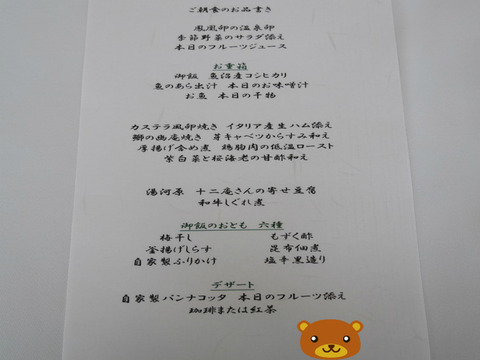 ご朝食のお品書き
鳳凰卵の温泉卵
季節野菜のサラダ添え
本日のフルーツジュース
お重箱
御飯 魚沼産コシヒカリ
魚のあら出汁 本日のお味噌汁
お魚 本日の干物
カステラ風卵焼き イタリア産生ハム添え
鰤の幽庵焼き 芽キャベツからすみ和え
厚揚げ含め煮 鶏胸肉の低温ロースト
紫白菜と桜海老の甘酢和え
湯河原 十二庵さんの寄せ豆腐
和牛しぐれ煮
御飯のおとも 六種
梅干し もずく酢
釜揚げしらす 昆布佃煮
自家製ふりかけ 塩辛黒造り
デザート
自家製パンナコッタ 本日のフルーツ添え
珈琲または紅茶